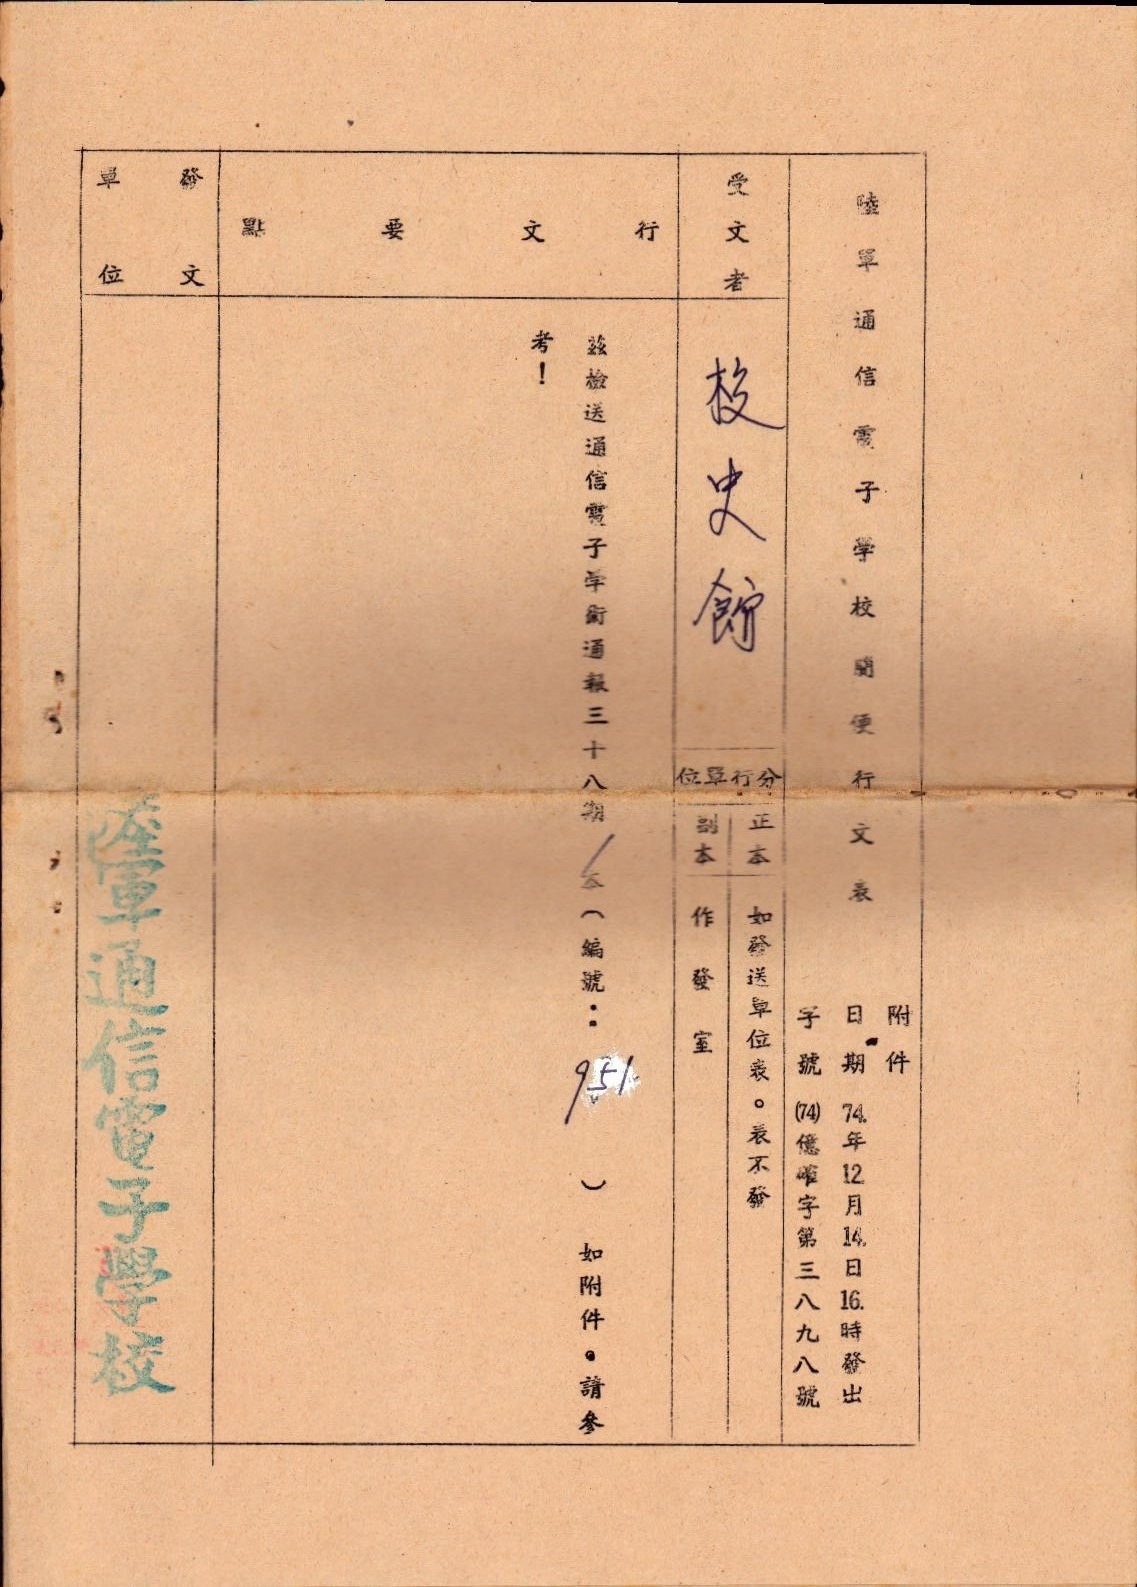 陸軍通信電子學校簡便行文表
附件
日期 74.年12.月14.日16.時發出
字號 (74)億確字第三八九八號
受文者
校史館
分行單位
正本
如發送單位表。表不發
副本
作發室
行文要點
茲檢送通信電子學術通報三十八期1本(編號：951)如附件。請參
考！
發文單位
陸軍通信電子學校